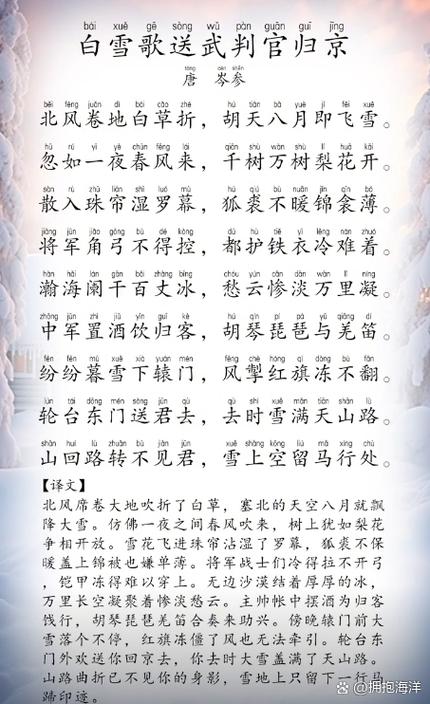 bái xuě gē sòng wǔ pàn guān guī jīng
白雪歌送武判官归京
táng cén shēn
唐 岑参
běi fēng juǎn dì bái cǎo zhé hú tiān bā yuè jí fēi xuě
北风卷地白草折，胡天八月即飞雪。
hū rú yī yè chūn fēng lái qiān shù wàn shù lí huā kāi
忽如一夜春风来，千树万树梨花开。
sàn rù zhū lián shī luó mù hú qiú bù nuǎn jǐn qīn bó
散入珠帘湿罗幕，狐裘不暖锦衾薄。
jiāng jūn jiǎo gōng bù dé kòng dū hù tiě yī lěng nán zhuó
将军角弓不得控，都护铁衣冷难着。
hàn hǎi lán gān bǎi zhàng bīng chóu yún cǎn dàn wàn lǐ níng
瀚海阑干百丈冰，愁云惨淡万里凝。
zhōng jūn zhì jiǔ yǐn guī kè hú qín pí pá yǔ qiāng dí
中军置酒饮归客，胡琴琵琶与羌笛。
fēn fēn mù xuě xià yuán mén fēng chè hóng qí dòng bù fān
纷纷暮雪下辕门，风掣红旗冻不翻。
lún tái dōng mén sòng jūn qù qù shí xuě mǎn tiān shān lù
轮台东门送君去，去时雪满天山路。
shān huí lù zhuǎn bù jiàn jūn xuě shàng kōng liú mǎ xíng chù
山回路转不见君，雪上空留马行处。
【译文】
北风席卷大地吹折了白草，塞北的天空八月就飘
降大雪。仿佛一夜之间春风吹来，树上犹如梨花
争相开放。雪花飞进珠帘沾湿了罗幕，狐裘不保
暖盖上锦被也嫌单薄。将军战士们冷得拉不开弓
，铠甲冻得难以穿上。无边沙漠结着厚厚的冰，
万里长空凝聚着惨淡愁云。主帅帐中摆酒为归客
饯行，胡琴琵琶羌笛合奏来助兴。傍晚辕门前大
雪落个不停，红旗冻僵了风也无法牵引。轮台东
门外欢送你回京去，你去时大雪盖满了天山路。
山路曲折已不见你的身影，雪地上只留下一行马
蹄印迹。
@拥抱海洋